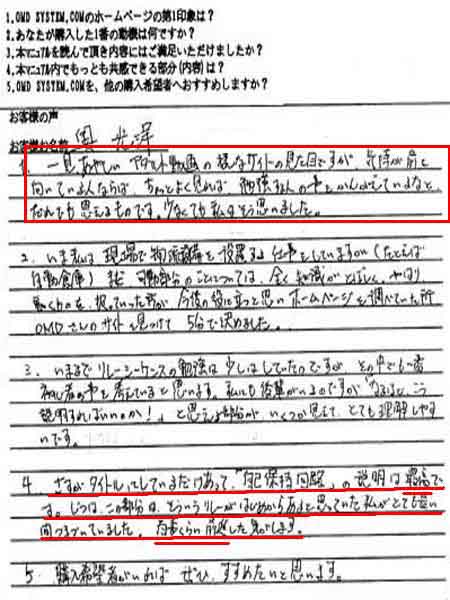 1.OMD SYSTEM.COMのホームページの第1印象は？
2.あなたが購入した1番の動機は何ですか？
3.本マニュアルを読んで頂き内容にはご満足いただけましたか？
4.本マニュアル内でもっとも共感できる部分（内容）は？
5.OMD SYSTEM.COMを、他の購入希望者へおすすめしますか？
お客様の声
お客様お名前 奥
1. 一見あやしい アダルト動画の様なサイトの見た目ですが、気持が前に
向いている人ならば、ちょっとよく見れば 勉強する人の事をかんがえているなと
だれでも思えるものです。少なくても私はそう思いました。
2. いま私は 現場で物流機を設置する仕事をしていますが（たとえば
自動倉庫） 可動部分のことについては、全く知識がとぼしく、やはり
動くものを、扱っていった方が 今後の役に立つと思い ホームページを調べていた所
OMDさんのサイトを見つけて 5分で決めました。
3. いままでリレーシーケンスの勉強は少しはしていたのですが その中でも一番
初心者の事を考えていると思います。私にも後輩がいるのですが「なるほど、こう
説明すればいいのか！」と思える部分が いくつか見えて、とても理解しやす
いです。
4. さすがタイトルにしているだけあって、「自己保持回路」の説明は最高で
す。じつは、この部分は、そういうリレーがはじめからあると思っていた私がとても長い
間つまづいていました。 前進した気がします。
5. 購入希望者がいれば ぜひ、すすめたいと思います。